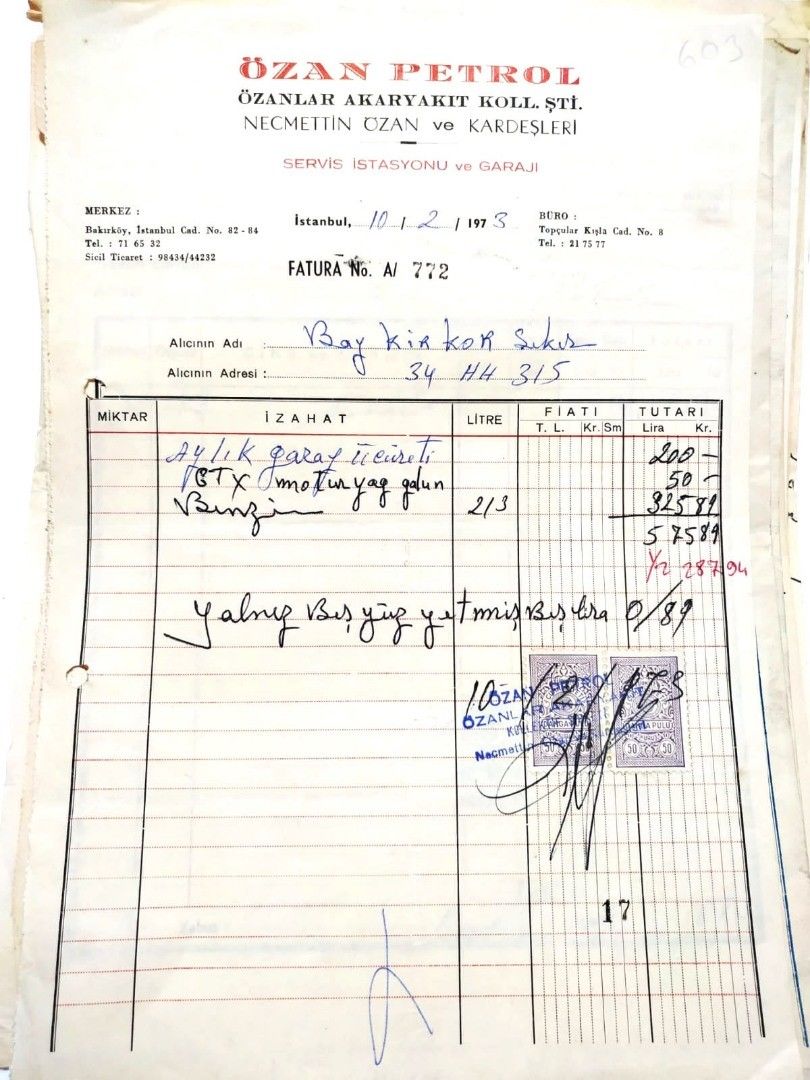 603
ÖZAN PETROL
ÖZANLAR AKARYAKIT KOLL. ŞTİ.
NECMETTİN ÖZAN ve KARDEŞLERİ
SERVİS İSTASYONU ve GARAJI
MERKEZ :
Bakırköy, İstanbul Cad. No. 82 - 84
Tel. : 71 65 32
Sicil Ticaret : 98434/44232
İstanbul, 10 / 2 / 1973
BÜRO :
Topçular Kışla Cad. No. 8
Tel. : 21 75 77
FATURA No. A/ 772
Alıcının Adı : Bay KİRKOR
Alıcının Adresi : 34 HH 315
MİKTAR İZAHAT LİTRE FİATI TUTARI
T. L. Kr. Sm Lira Kr.
Aylık garaj ücüreti 200 -
GTX motur yag galun 50 -
Benzin 213 325 89
575 89
1/2 287 94
Yalnız Beş yüz yetmiş Beş lira 0/89
10/2/973
ÖZAN PETROL
ÖZANLAR AKARYAKIT
Necmettin
PULU
50 50 50 50
17